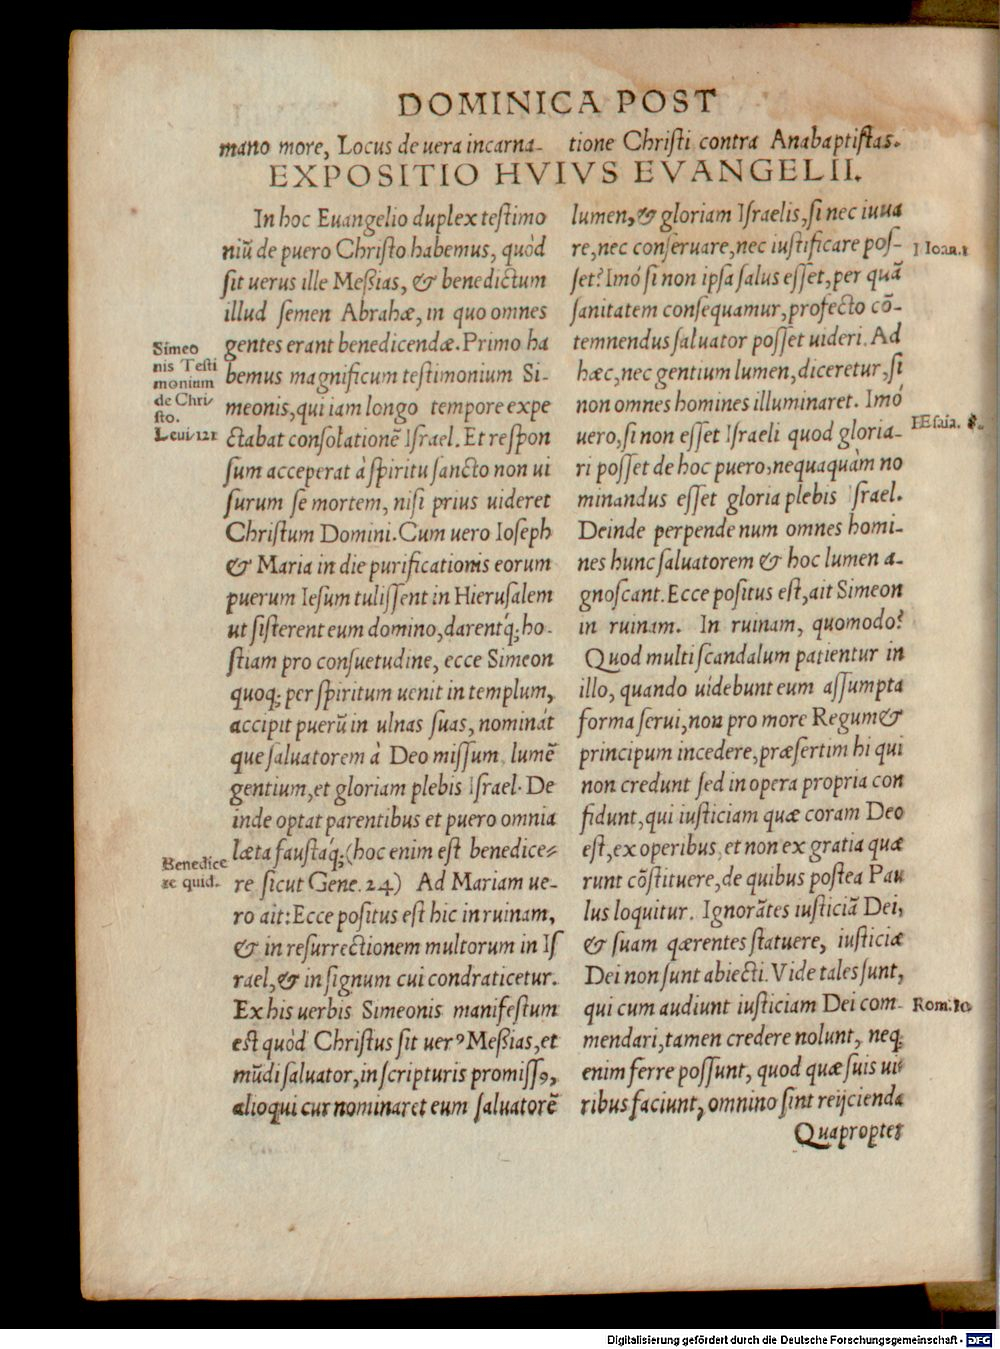 DOMINICA POST
mano more, Locus de uera incarna-
tione Christi contra Anabaptistas.
EXPOSITIO HVIVS EVANGELII.
In hoc Euangelio duplex testimo
niū de puero Christo habemus, quòd
sit uerus ille Meßias, & benedictum
illud semen Abrahæ, in quo omnes
gentes erant benedicendæ. Primo ha
bemus magnificum testimonium Si-
meonis, qui iam longo tempore expe
ctabat consolationē Israel. Et respon
sum acceperat à spiritu sancto non ui
surum se mortem, nisi prius uideret
Christum Domini. Cum uero Ioseph
& Maria in die purificationis eorum
puerum Iesum tulissent in Hierusalem
ut sisterent eum domino, darentq́; ho-
stiam pro consuetudine, ecce Simeon
quoq; per spiritum uenit in templum,
accipit puerū in ulnas suas, nominát
que saluatorem à Deo missum, lumē
gentium, et gloriam plebis Israel. De
inde optat parentibus et puero omnia
læta faustaq́; (hoc enim est benedice-
re sicut Gene. 24.) Ad Mariam ue-
ro ait: Ecce positus est hic in ruinam,
& in resurrectionem multorum in Is
rael, & in signum cui condraticetur.
Ex his uerbis Simeonis manifestum
est quòd Christus sit uerꝰ Meßias, et
mūdi saluator, in scripturis promissꝰ,
alioqui cur nominaret eum saluatorē
Simeo
nis Testi
monium
de Chri-
sto.
Leui. 121
Benedice
re quid.
lumen, & gloriam Israelis, si nec iuua
re, nec conseruare, nec iustificare pos-
set? Imó si non ipsa salus esset, per quā
sanitatem consequamur, profecto cō-
temnendus saluator posset uideri. Ad
hæc, nec gentium lumen, diceretur, si
non omnes homines illuminaret. Imó
uero, si non esset Israeli quod gloria-
ri posset de hoc puero, nequaquàm no
minandus esset gloria plebis Israel.
Deinde perpende num omnes homi-
nes hunc saluatorem & hoc lumen a-
gnoscant. Ecce positus est, ait Simeon
in ruinam. In ruinam, quomodo?
Quod multi scandalum patientur in
illo, quando uidebunt eum assumpta
forma serui, non pro more Regum &
principum incedere, præsertim hi qui
non credunt sed in opera propria con
fidunt, qui iusticiam quæ coram Deo
est, ex operibus, et non ex gratia quæ
runt cōstituere, de quibus postea Pau
lus loquitur. Ignorātes iusticiā Dei,
& suam qærentes statuere, iusticiæ
Dei non sunt abiecti. Vide tales sunt,
qui cum audiunt iusticiam Dei com-
mendari, tamen credere nolunt, neq;
enim ferre possunt, quod quæ suis ui-
ribus faciunt, omnino sint reijcienda
Quapropter
1 Ioan. 1
Esaia.
Rom. 10
Digitalisierung gefördert durch die Deutsche Forschungsgemeinschaft - DFG